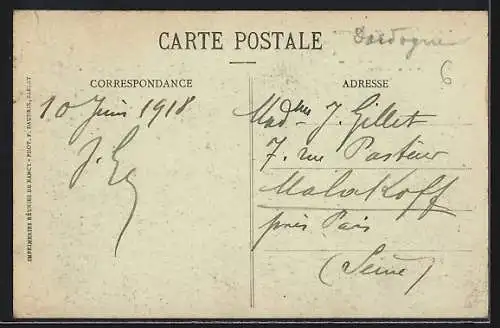 CARTE POSTALE
Dordogne
6
CORRESPONDANCE
ADRESSE
10 Juin 1918
J.
Madme J. Gillet
7. rue Pasteur
Malakoff
près Paris
(Seine)
IMPRIMERIES RÉUNIES DE NANCY - PHOT.